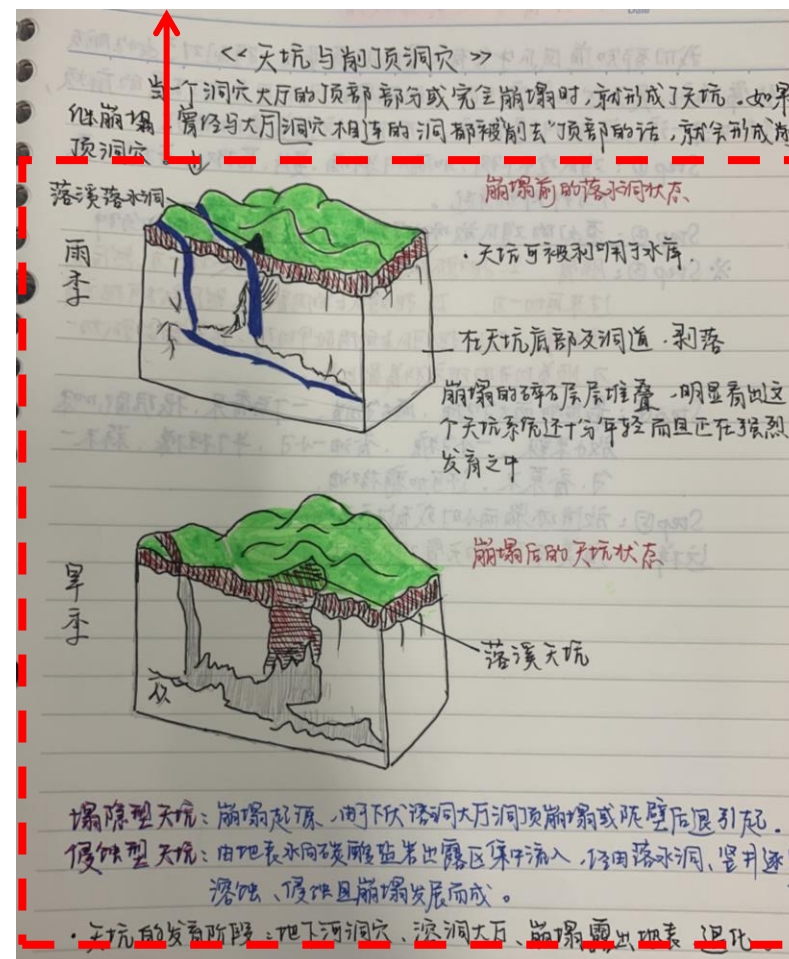 <<天坑与削顶洞穴>>
当一个洞穴大厅的顶部部分或完全崩塌时,就形成了天坑。如果
继崩塌曾经与大厅洞穴相连的洞都被削去顶部的话,就会形成削
顶洞穴。
落溪落水洞
崩塌前的落水洞状态
雨季
·天坑可被利用于水库.
在天坑底部及洞道.剥落
崩塌的碎石层层堆叠.明显看出这
个天坑系统还十分年轻而且正在强烈
发育之中
崩塌后的天坑状态
旱季
落溪天坑
塌陷型天坑:崩塌起源、由下伏溶洞大厅洞顶崩塌或陡壁后退引起.
侵蚀型天坑:由地表水向碳酸盐岩出露区集中流入,经由落水洞、竖井逐
溶蚀、侵蚀且崩塌发展而成。
·天坑的发育阶段:地下河洞穴、溶洞大厅、崩塌露出地表 退化.